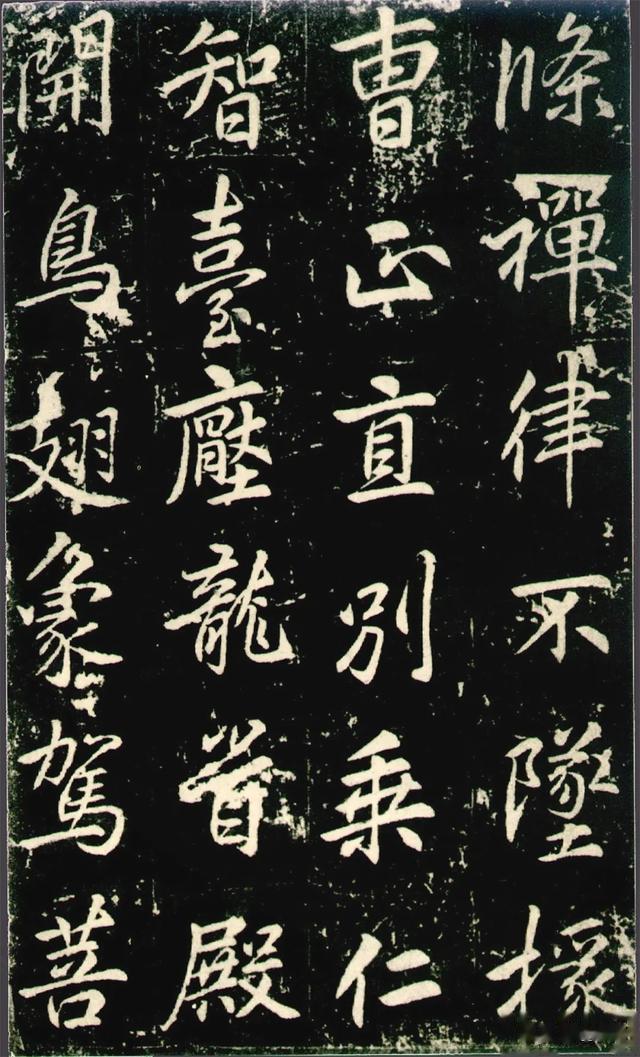 條禪律不墜掾
曹正直別乘仁
智臺壓龍首殿
開鳥翅象駕菩